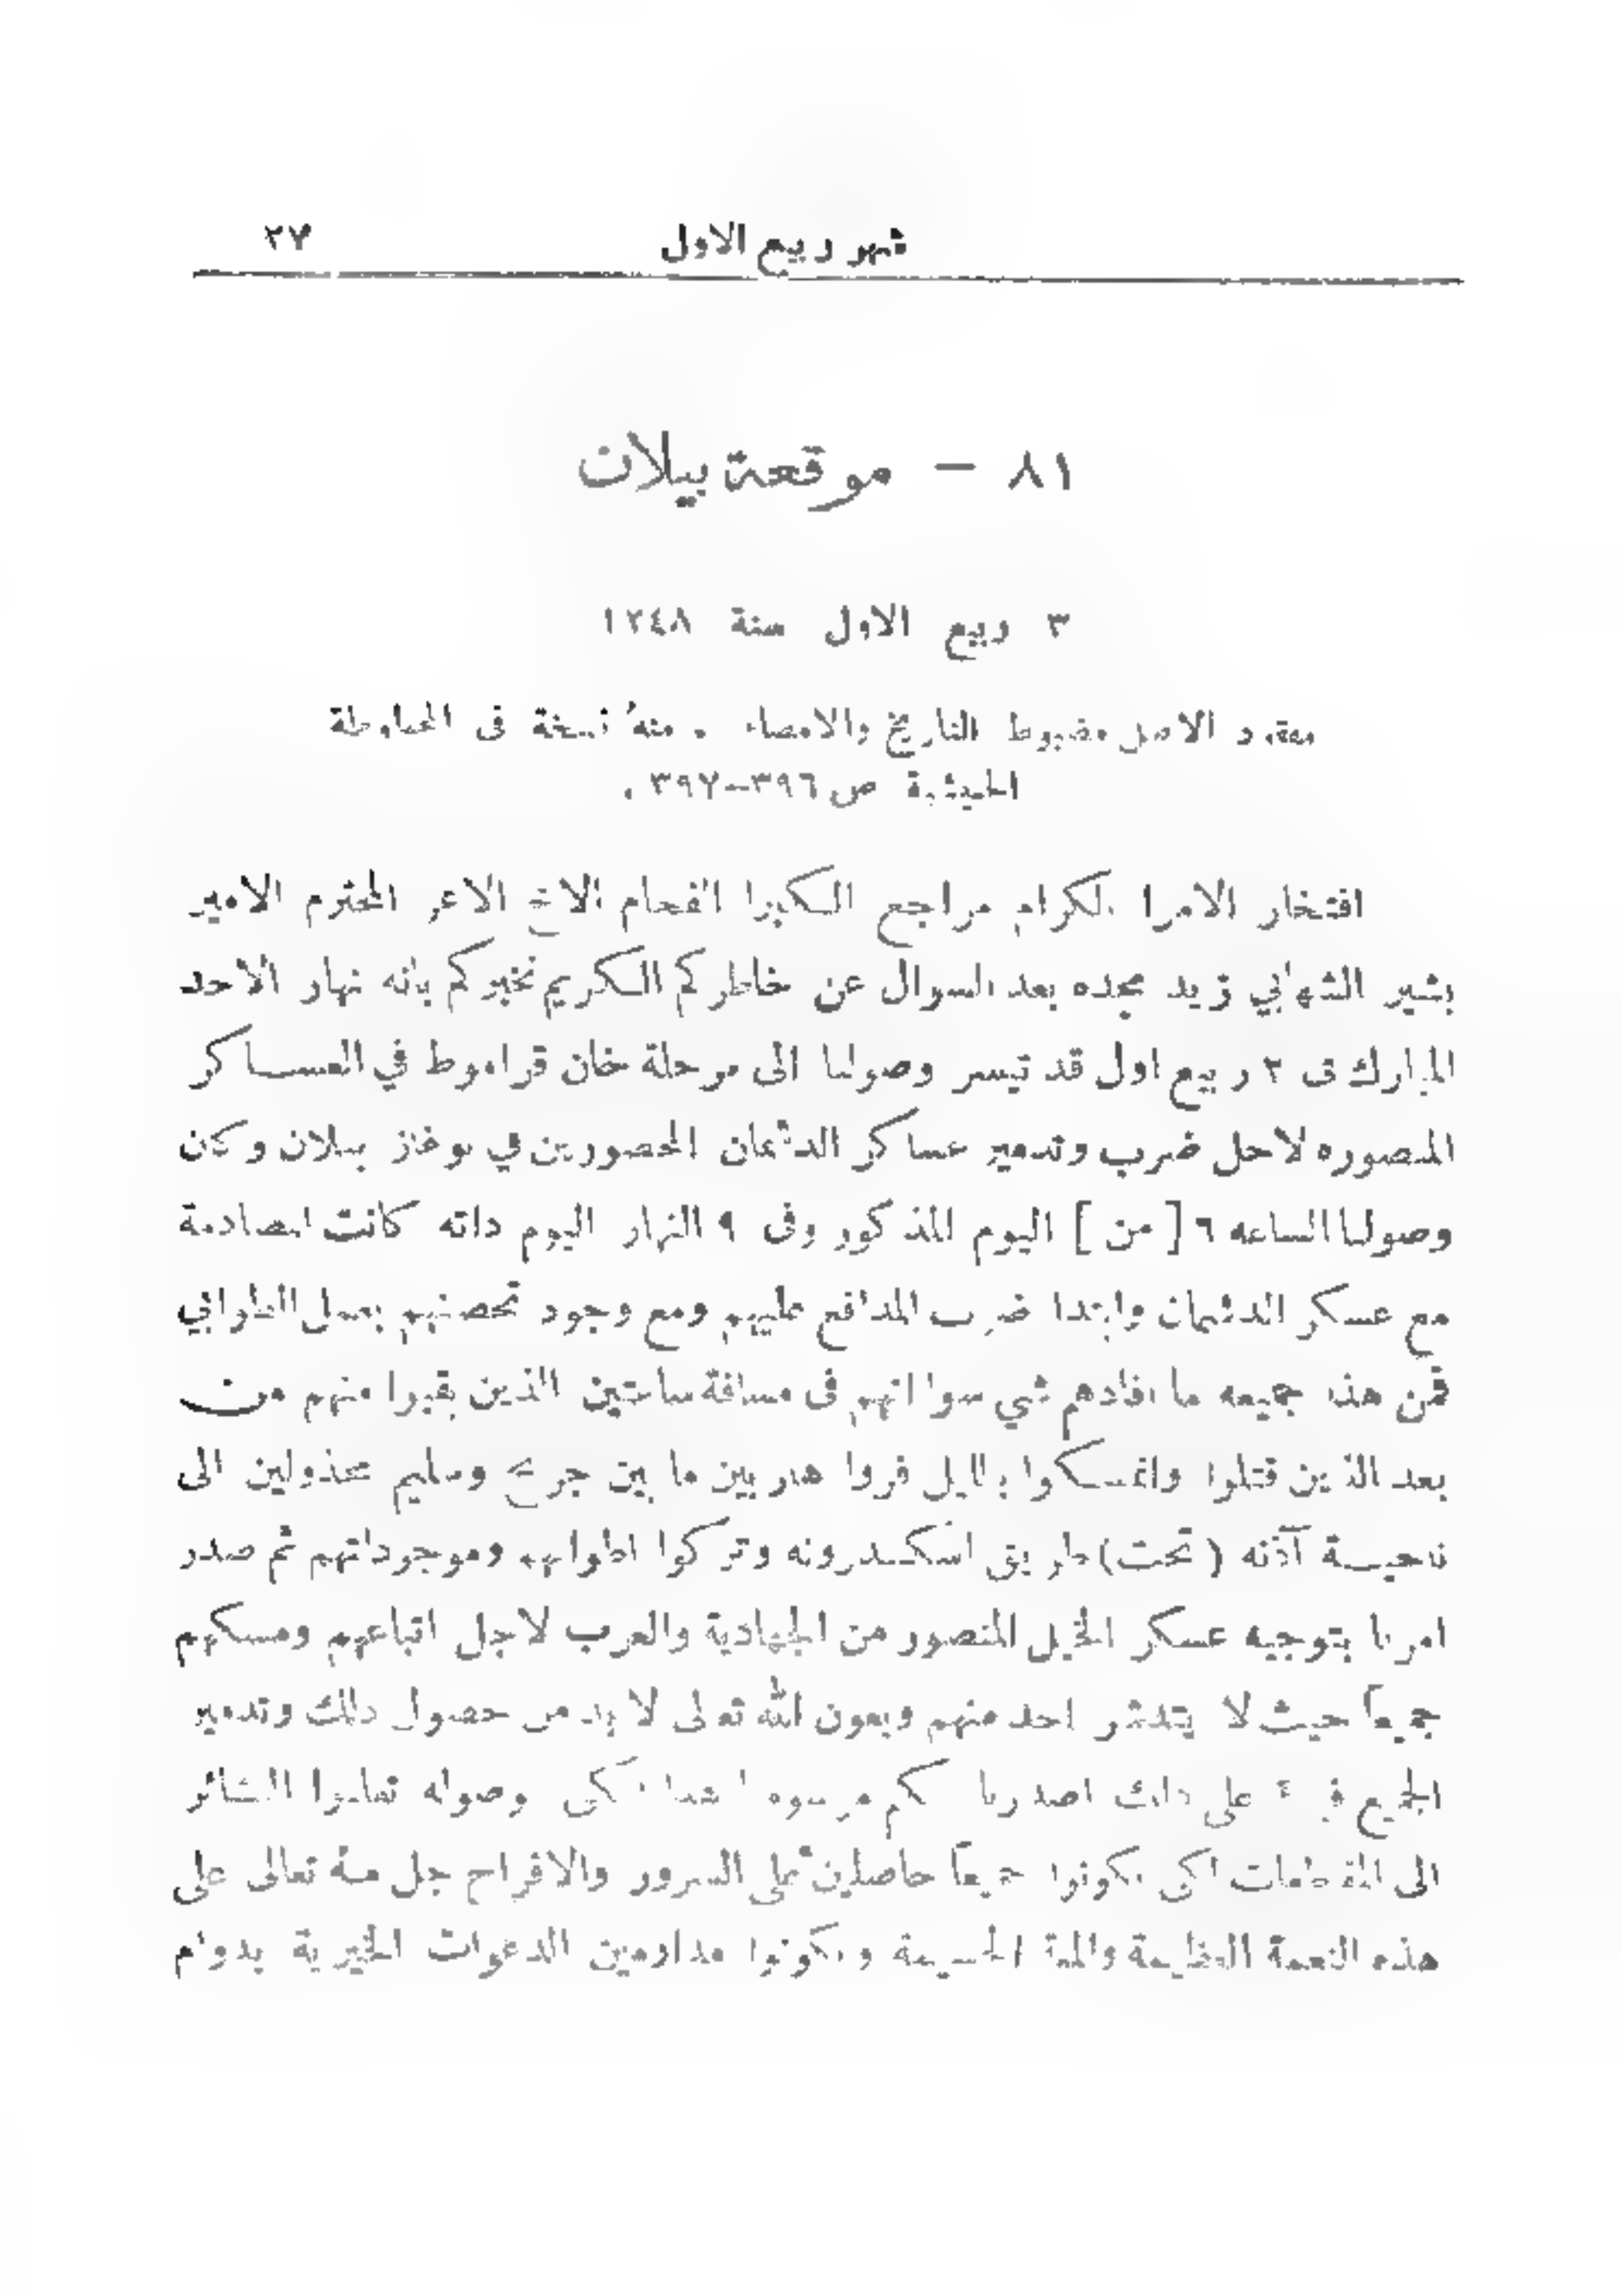 شهر ربيع الاول ٢٧
٨١ – موقعة بيلان
٣ ربيع الاول سنة ١٢٤٨
مفقود الاصل مضبوط التاريخ والامضاء . منهُ نسخة فى المحفوظة
ص ٣٩٦–٣٩٧ .
افتخار الامرا الكرام مراجع الكبرا الفخام الاخ الاعز المحترم الامير
بشير الشهابي زيد مجده بعد السوال عن خاطركم الكريم نخبركم بانه نهار الاحد
المبارك فى ٢ ربيع اول قد تيسر وصولنا الى مرحلة خان قراموط في العساكر
المنصوره لاجل ضرب وتدمير عساكر الدشمان المحصورين في بوغاز بيلان وكان
وصولنا الساعه ٦ [ من ] اليوم المذكور وفى ٩ النهار اليوم ذاته كانت المصادمة
مع عسكر الدشمان وابتدا ضرب المدافع عليهم ومع وجود تحصنهم بعمل الطوابي
فمن هذا جميعه ما افادهم شي سوا انهم فى مسافة ساعتين الذين بقيوا منهم من
بعد الذين قتلوا وانمسكوا بالليل فروا هاربين ما بين جريح وسليم مخذولين الى
ناحيــة آذنه ( تحت ) طريق اسكندرونه وتركوا اطوابهم وموجوداتهم ثم صدر
امرنا بتوجيه عسكر الخيل المنصور من الجهادية والعرب لاجل اتباعهم ومسكهم
جميعاً حيث لا يتدشر احد منهم وبعون الله تعالى لا بد من حصول ذلك وتدمير
الجميع على ذلك اصدرنا لكم مرسومنا هذا لكى وصوله تعلنوا البشائر
الى المقاطعات لكى تكونوا جميعاً حاصلين على السرور والافراح جل منهُ تعالى على
هذه النعمة العظيمة والمنة الجسيمة وتكونوا مداومين الدعوات الخيرية بدوام